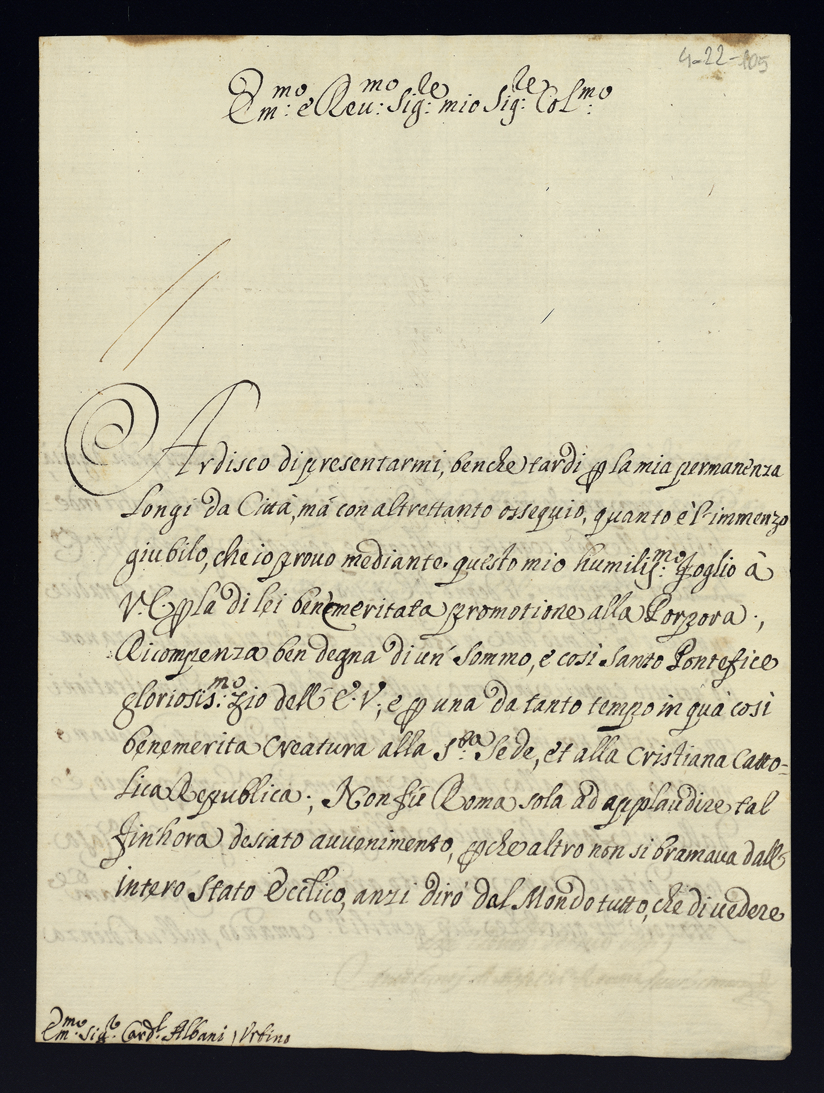 4-22-105
Em:mo e Reu:mo Sig:re mio Sig:re Col:mo
Ardisco di presentarmi, benche tardi ꝑ la mia permanenza
Longi da Città, mà con altrettanto ossequio, quanto è l'immenzo
giubilo, che io prouo mediante questo mio humilis:mo foglio à
V. E. ꝑ la di lei benemeritata promotione alla Porpora;
Ricompenza ben degna di un' Sommo, e così Santo Pontefice
gloriosis:mo zio dell' E. V., e ꝑ una da tanto tempo in quà così
benemerita Creatura alla S:ta Sede, et alla Cristiana Catto-
lica Republica; Non fù Roma sola ad applaudire tal
fin'hora desiato auuenimento, ꝑche altro non si bramaua dall'
intero Stato Ecclico, anzi dirò dal Mondo tutto, che di uedere
Em:mo Sig:r Card:l Albani / Vrbino